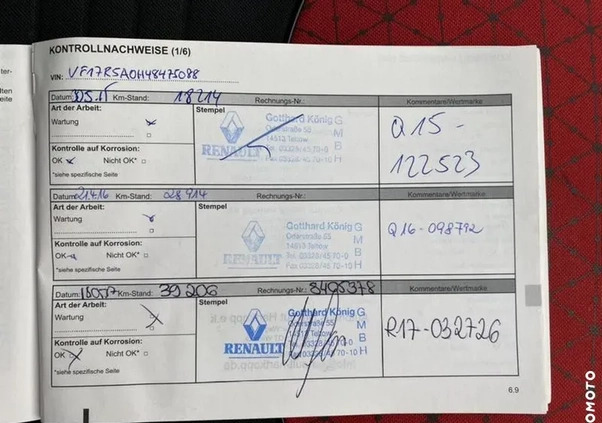 KONTROLLNACHWEISE (1/6)
VIN: VF17RSA0H48475088
Datum: Km-Stand: 18214 Rechnungs-Nr.: Kommentare/Wertmarke
Art der Arbeit: Stempel
Wartung
Gotthard König G
Oderstraße 55 M
14513 Teltow B
RENAULT
Tel. 03328/45 70-0
Fax 03328/45 70-10 H
Q15-
122523
Kontrolle auf Korrosion:
OK Nicht OK*
*siehe spezifische Seite
Datum: 21.4.16 Km-Stand: 028914 Rechnungs-Nr.: Kommentare/Wertmarke
Art der Arbeit: Stempel
Wartung
Gotthard König G
Oderstraße 55 M
14513 Teltow B
RENAULT
Tel. 03328/45 70-0
Fax 03328/45 70-10 H
Q16-098792
Kontrolle auf Korrosion:
OK Nicht OK*
*siehe spezifische Seite
Datum: Km-Stand: 39206 Rechnungs-Nr.: 8495378 Kommentare/Wertmarke
Art der Arbeit: Stempel
Wartung
Gotthard König G
Oderstraße 55 M
14513 Teltow B
RENAULT
Tel. 03328/45 70-0
Fax 03328/45 70-10 H
R17-032726
Kontrolle auf Korrosion:
OK Nicht OK*
*siehe spezifische Seite
6.9
OMOTO